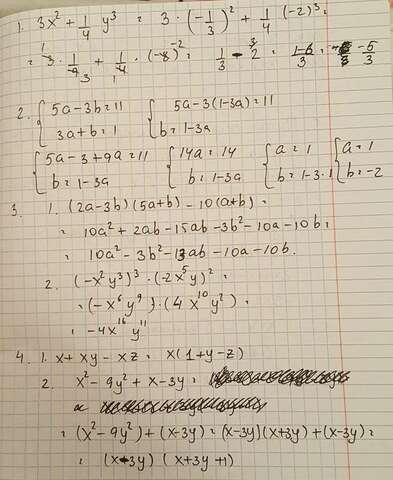 1. 3x² + 1/4 y³ = 3 · (-1/3)² + 1/4 (-2)³ =
= 3 · 1/9 + 1/4 · (-8) = 1/3 - 2 = 1-6/3 = -5/3
2. { 5a-3b=11 { 5a-3(1-3a)=11
3a+b=1 b=1-3a
{ 5a-3+9a=11 { 14a=14 { a=1 { a=1
b=1-3a b=1-3a b=1-3·1 b=-2
3. 1. (2a-3b)(5a+b)-10(a+b)=
= 10a²+2ab-15ab-3b²-10a-10b=
= 10a²-3b²-13ab-10a-10b.
2. (-x²y³)³·(-2x⁵y)²=
=(-x⁶y⁹)·(4x¹⁰y²)=
= -4x¹⁶y¹¹
4. 1. x+xy-xz= x(1+y-z)
2. x²-9y²+x-3y=
=(x²-9y²)+(x-3y)=(x-3y)(x+3y)+(x-3y)=
= (x-3y)(x+3y+1)